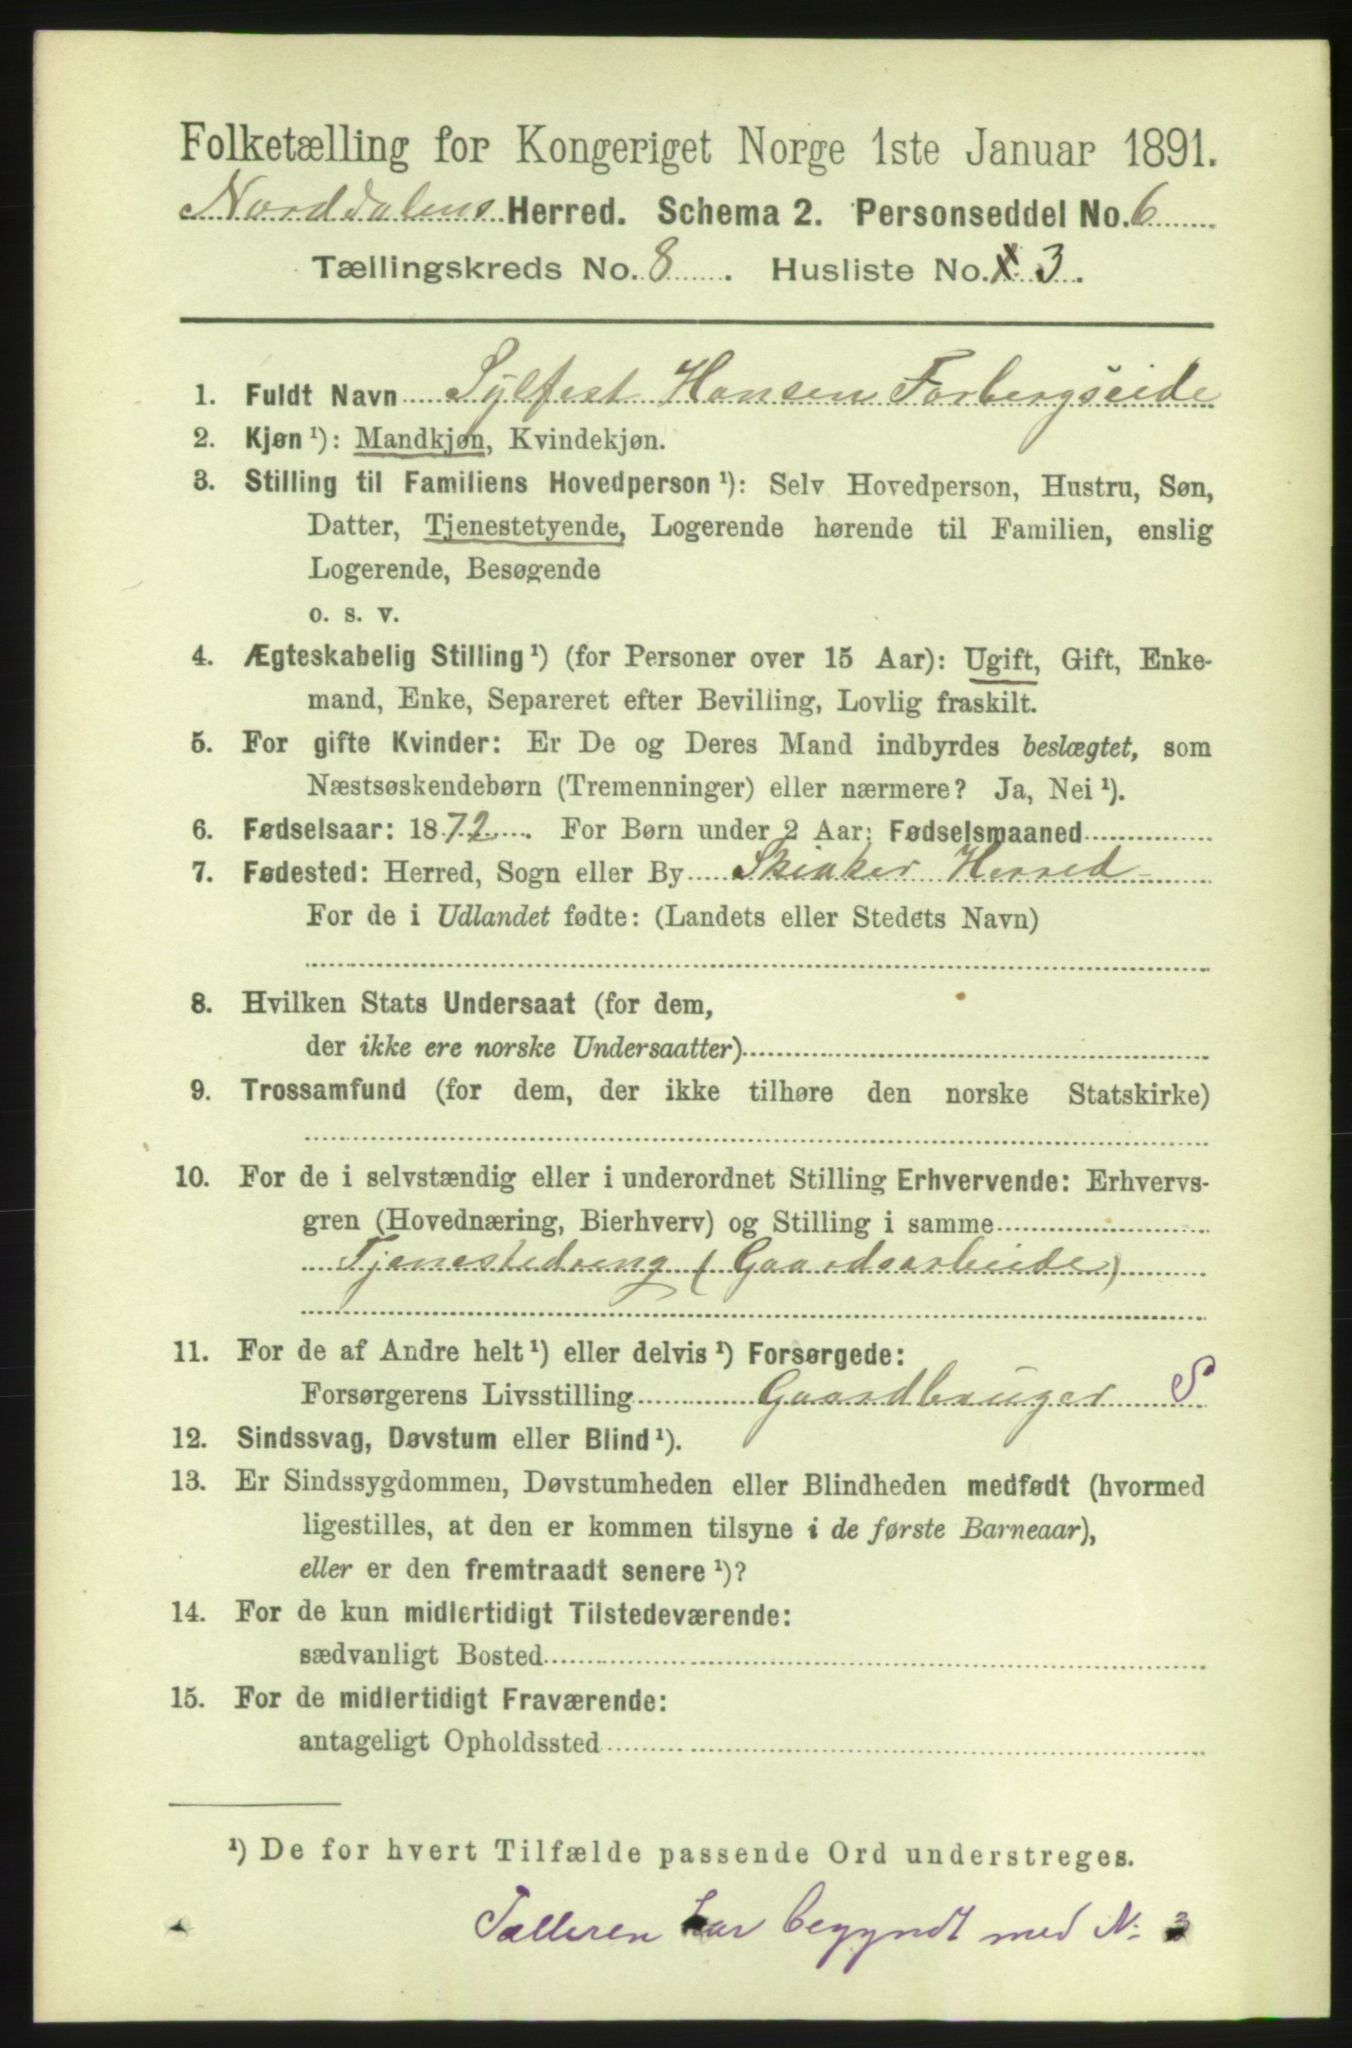 Folketælling for Kongeriget Norge 1ste Januar 1891.
Norddalens Herred. Schema 2. Personseddel No. 6
Tællingskreds No. 8. Husliste No. 3.
1. Fuldt Navn Sylfest Hansen Forbergseide
2. Kjøn¹): Mandkjøn, Kvindekjøn.
3. Stilling til Familiens Hovedperson¹): Selv Hovedperson, Hustru, Søn,
Datter, Tjenestetyende, Logerende hørende til Familien, enslig
Logerende, Besøgende
o. s. v.
4. Ægteskabelig Stilling¹) (for Personer over 15 Aar): Ugift, Gift, Enke-
mand, Enke, Separeret efter Bevilling, Lovlig fraskilt.
5. For gifte Kvinder: Er De og Deres Mand indbyrdes beslægtet, som
Næstsøskendebørn (Tremenninger) eller nærmere? Ja, Nei¹).
6. Fødselsaar: 1872. For Børn under 2 Aar: Fødselsmaaned
7. Fødested: Herred, Sogn eller By Skiaker Herred
For de i Udlandet fødte: (Landets eller Stedets Navn)
8. Hvilken Stats Undersaat (for dem,
der ikke ere norske Undersaatter)
9. Trossamfund (for dem, der ikke tilhøre den norske Statskirke)
10. For de i selvstændig eller i underordnet Stilling Erhvervende: Erhvervs-
gren (Hovednæring, Bierhverv) og Stilling i samme
Tjenestedreng (Gaardsarbeide)
11. For de af Andre helt¹) eller delvis¹) Forsørgede:
Forsørgerens Livsstilling Gaardbruger S
12. Sindssvag, Døvstum eller Blind¹).
13. Er Sindssygdommen, Døvstumheden eller Blindheden medfødt (hvormed
ligestilles, at den er kommen tilsyne i de første Barneaar),
eller er den fremtraadt senere¹)?
14. For de kun midlertidigt Tilstedeværende:
sædvanligt Bosted
15. For de midlertidigt Fraværende:
antageligt Opholdssted
¹) De for hvert Tilfælde passende Ord understreges.
Tælleren har begyndt med N: 3